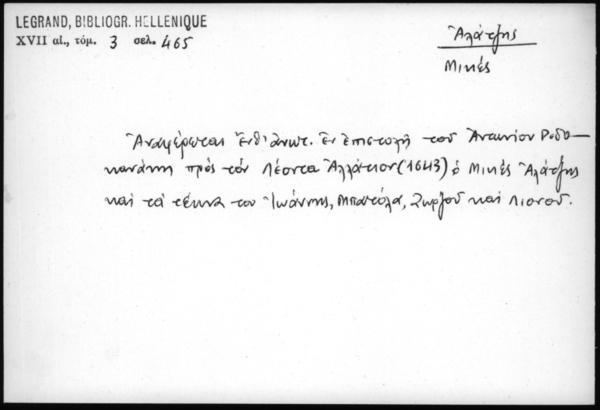 LEGRAND, BIBLIOGR. HELLENIQUE
XVII αἰ., τόμ. 3 σελ. 465
Ἀλάτζης
Μικές
Ἀναφέρεται ἔνθ' ἀνωτ. ἐν ἐπιστολῇ τοῦ Ἀντωνίου Ροδο-
κανάκη πρὸς τὸν Λέοντα Ἀλλάτιον (1643) ὁ Μικές Ἀλάτζης
καὶ τὰ τέκνα του Ἰωάννης, Μπατόλα, Ζωρζοῦ καὶ Λιονοῦ.